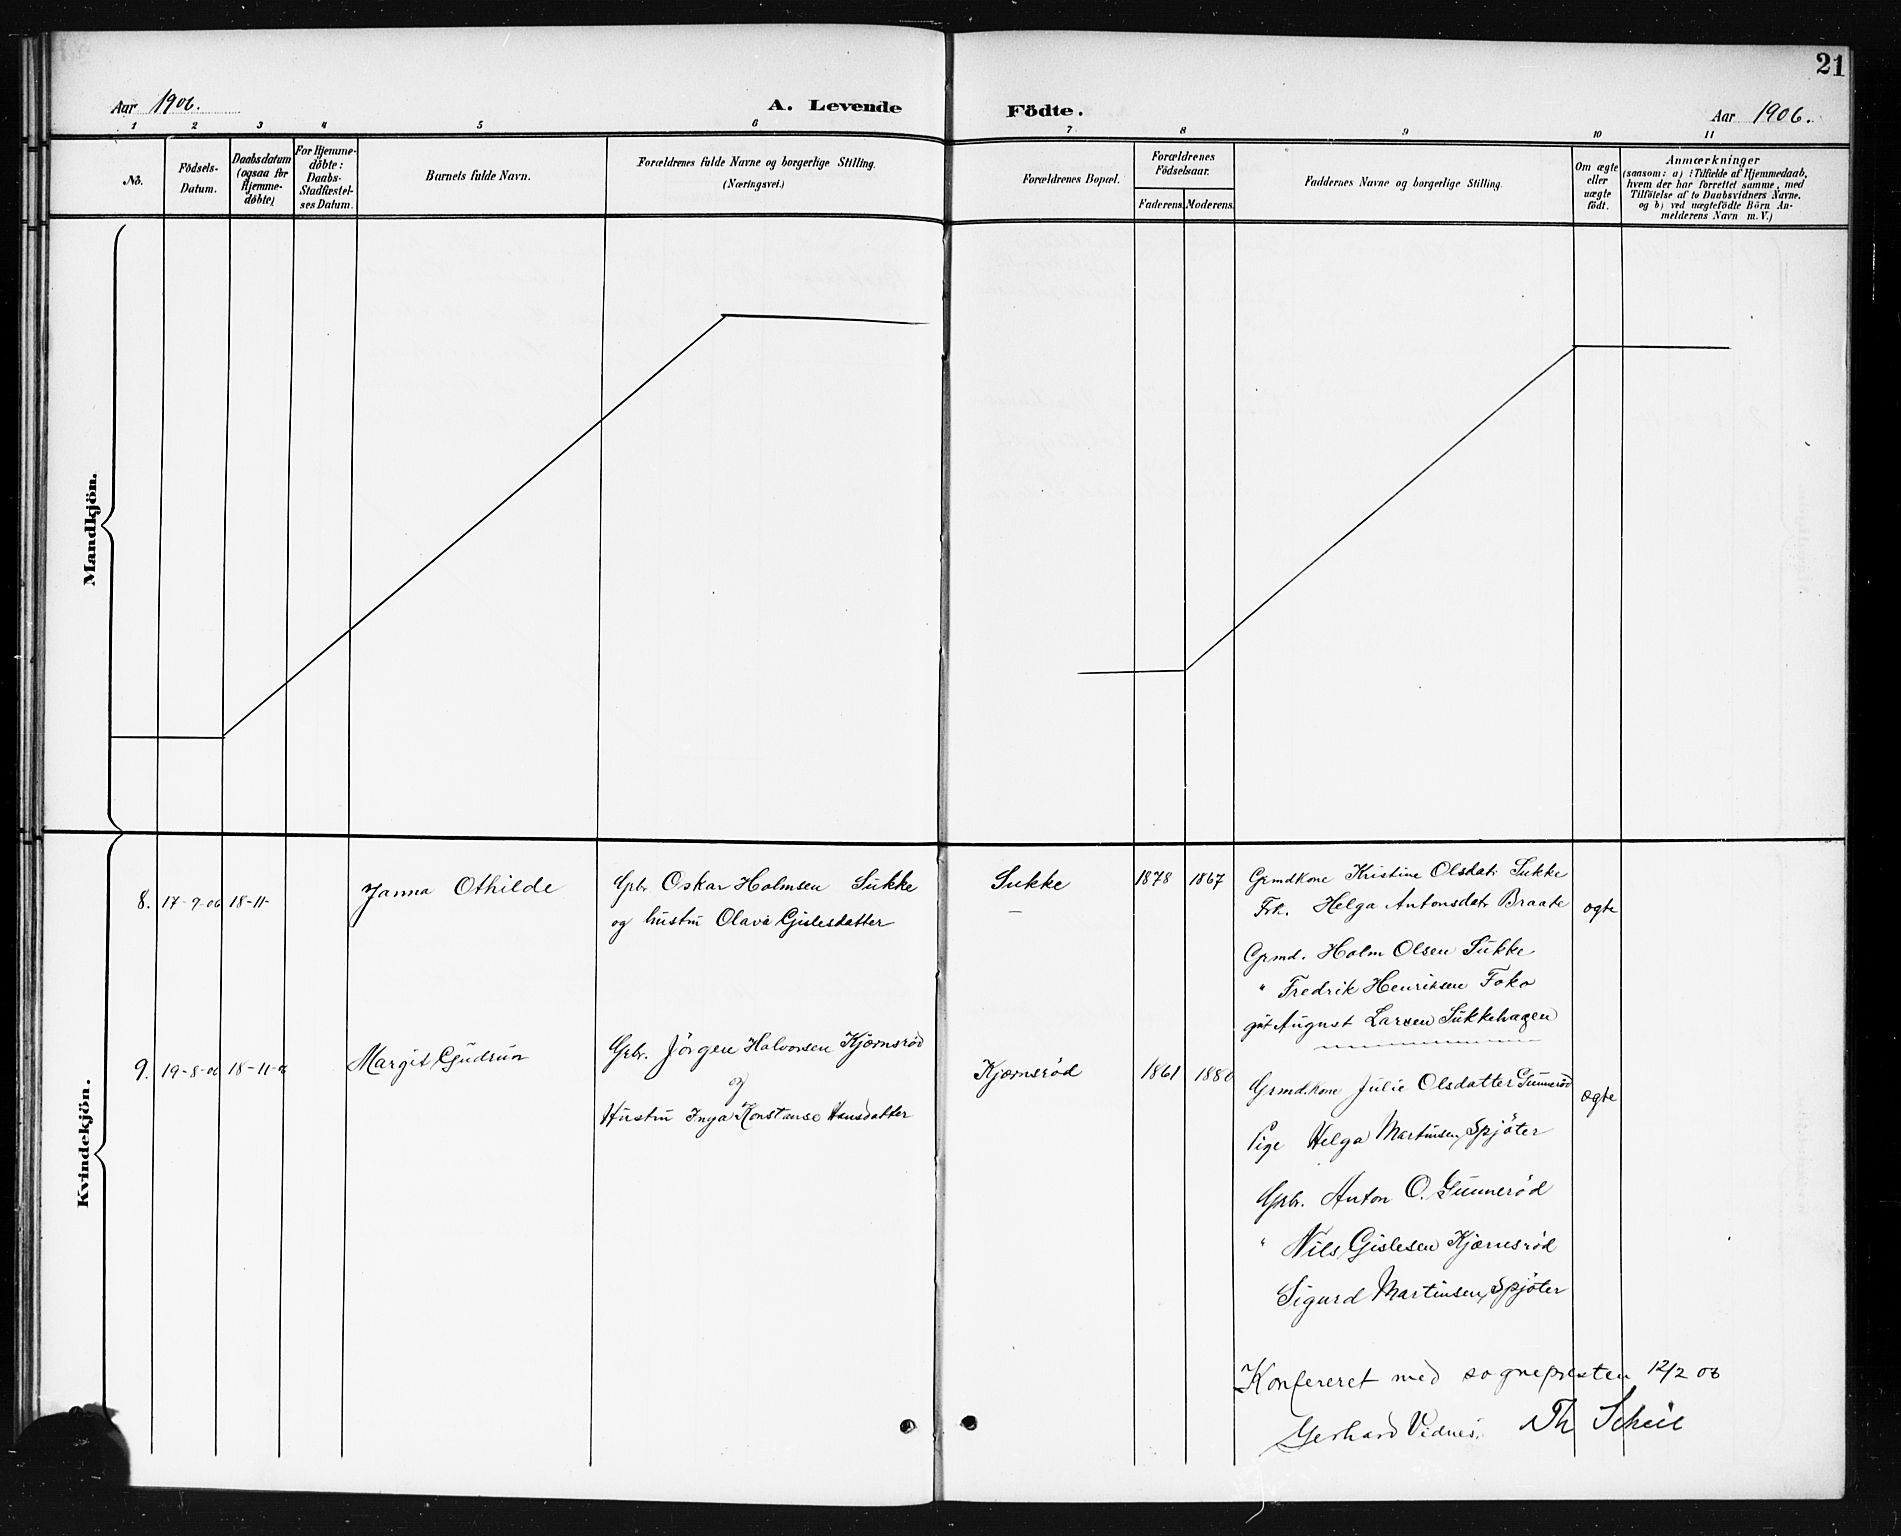 21
Aar 1906.
A. Levende Födte.
Aar 1906.
1 2 3 4 5 6 7 8 9 10 11
No.
Födsels-
Datum.
Daabsdatum
(ogsaa for
Hjemme-
döbte)
For Hjemme-
döbte:
Daabs-
Stadfæstel-
ses Datum.
Barnets fulde Navn.
Forældrenes fulde Navne og borgerlige Stilling.
(Næringsvei.)
Forældrenes Bopæl.
Forældrenes
Födselsaar.
Faderens. Moderens.
Faddernes Navne og borgerlige Stilling.
Om ægte
eller
uægte
födt.
Anmærkninger
(saasom: a) i Tilfælde af Hjemmedaab,
hvem der har forrettet samme, med
Tilföielse af to Daabsvidners Navne.
og b) ved uægtefödte Börn An-
melderens Navn m. V.)
Mandkjön.
Kvindekjön.
8. 17-9-06 18-11-
Janna Othilde
Gbr. Oskar Holmsen Sukke
og hustru Olava Gislesdatter
Sukke
1878 1867
Grmdkone Kristine Olsdatr Sukke
Frk. Helga Antonsdatr Braate
Grmd. Holm Olsen Sukke
" Fredrik Henriksen Foko
gut August Larsen Sukkehagen
ægte
9. 19-8-06 18-11-06
Margit Gudrun
Gbr. Jörgen Halvorsen Kjærnsröd
og
Hustru Inga Konstanse Hansdatter
Kjærnsröd
1861 1880
Grmd.kone Julie Olsdatter Gunneröd
Pige Helga Martinsen, Spjöter
Gbr. Anton O. Gunneröd
" Nils Gislesen Kjærnsröd
Sigurd Martinsen, Spjöter
ægte
Konfereret med sognepresten 12/2 08
Gerhard Vidnes. Th Scheil